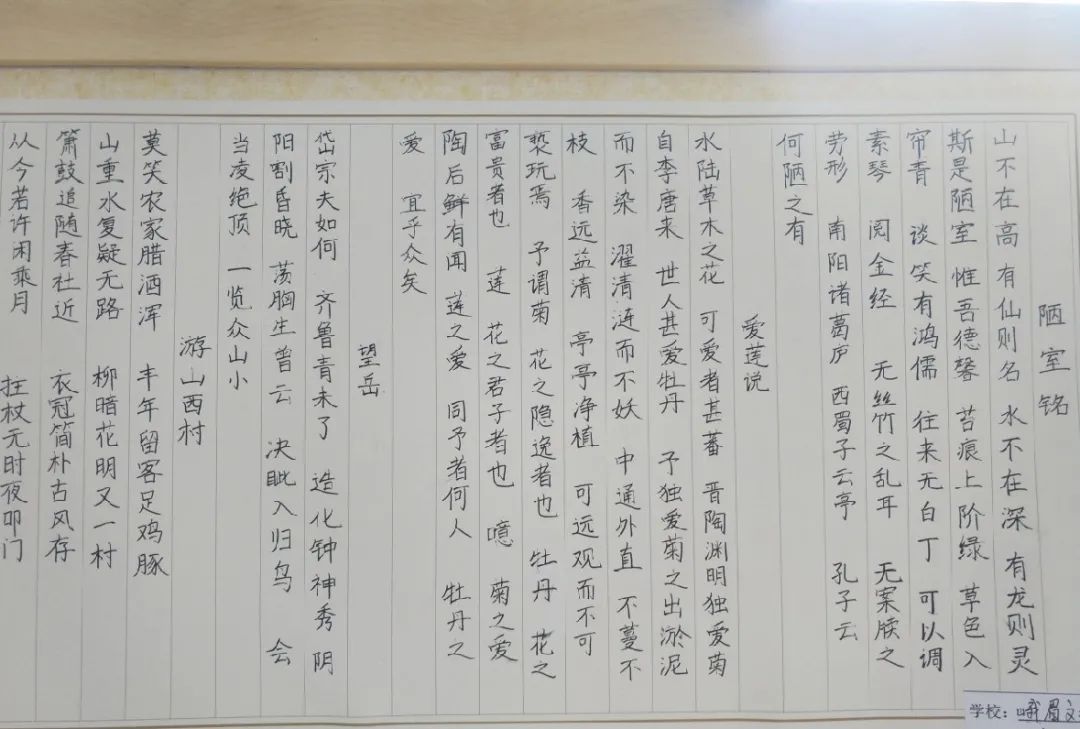 陋室铭
山不在高 有仙则名 水不在深 有龙则灵
斯是陋室 惟吾德馨 苔痕上阶绿 草色入
帘青 谈笑有鸿儒 往来无白丁 可以调
素琴 阅金经 无丝竹之乱耳 无案牍之
劳形 南阳诸葛庐 西蜀子云亭 孔子云
何陋之有
爱莲说
水陆草木之花 可爱者甚蕃 晋陶渊明独爱菊
自李唐来 世人甚爱牡丹 予独爱菊之出淤泥
而不染 濯清涟而不妖 中通外直 不蔓不
枝 香远益清 亭亭净植 可远观而不可
亵玩焉 予谓菊 花之隐逸者也 牡丹 花之
富贵者也 莲 花之君子者也 噫 菊之爱
陶后鲜有闻 莲之爱 同予者何人 牡丹之
爱 宜乎众矣
望岳
岱宗夫如何 齐鲁青未了 造化钟神秀 阴
阳割昏晓 荡胸生曾云 决眦入归鸟 会
当凌绝顶 一览众山小
游山西村
莫笑农家腊酒浑 丰年留客足鸡豚
山重水复疑无路 柳暗花明又一村
箫鼓追随春社近 衣冠简朴古风存
从今若许闲乘月 拄杖无时夜叩门
学校：峨眉文